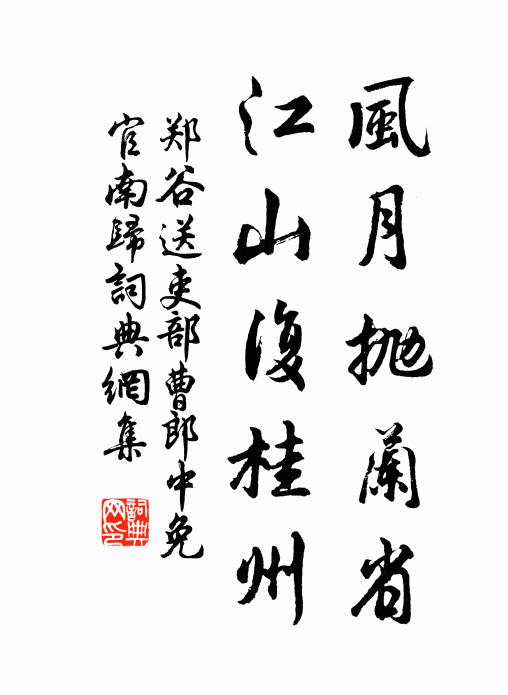 風月抛蘭省
江山復桂州
郑谷送吏部曹郎中免
官南歸詞典網集
詞典网印